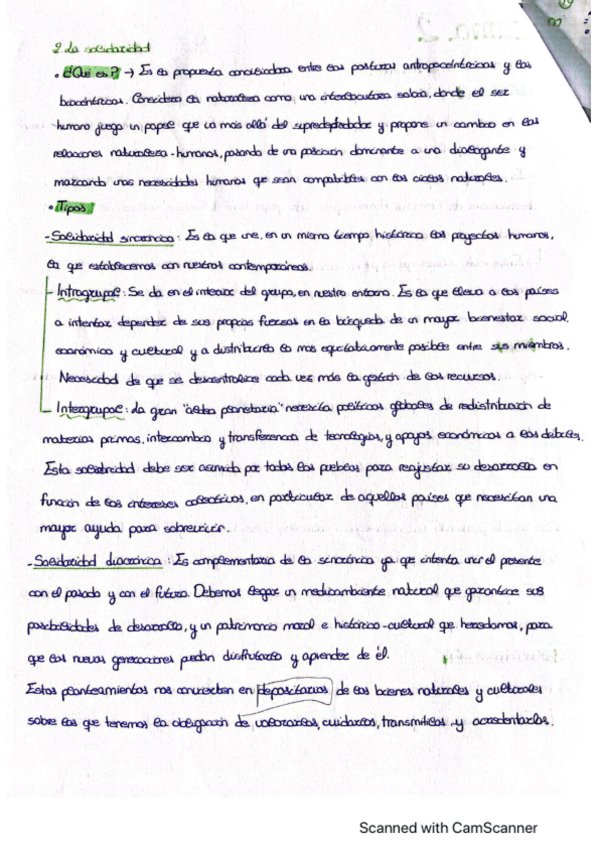 2. La solidaridad
• ¿Qué es? → Es la propuesta conciliadora entre las posturas antropocéntricas y las
biocéntricas. Considera la naturaleza como una interlocutora salvia, donde el ser
humano juega un papel que va más allá del superdepredador y propone un cambio en las
relaciones naturaleza-humanos, pasando de una posición dominante a una dialogante y
marcando unas necesidades humanas que sean compatibles con los ciclos naturales.
• Tipos:
- Solidaridad sincrónica: Es la que une, en un mismo tiempo histórico los proyectos humanos,
la que establecemos con nuestros contemporáneos.
- Intragrupal: Se da en el interior del grupo, en nuestro entorno. Es la que lleva a los países
a intentar depender de sus propias fuerzas en la búsqueda de un mayor bienestar social,
económico y cultural y a distribuirlo lo más equitativamente posible entre sus miembros.
Necesidad de que se descentralice cada vez más la gestión de los recursos.
- Intergrupal: La gran "aldea planetaria" necesita políticas globales de redistribución de
materias primas, intercambio y transferencia de tecnologías, y apoyos económicos a los débiles.
Esta solidaridad debe ser asumida por todos los pueblos para reajustar su desarrollo en
función de los intereses colectivos, en particular de aquellos países que necesitan una
mayor ayuda para sobrevivir.
- Solidaridad diacrónica: Es complementaria de la sincrónica ya que intenta unir el presente
con el pasado y con el futuro. Debemos legar un medioambiente natural que garantice sus
posibilidades de desarrollo, y un patrimonio moral e histórico-cultural que heredamos, para
que las nuevas generaciones puedan disfrutarlo y aprender de él.
Estos planteamientos nos convierten en depositarios de los bienes naturales y culturales
sobre los que tenemos la obligación de valorarlos, cuidarlos, transmitirlos y acrecentarlos.
Scanned with CamScanner